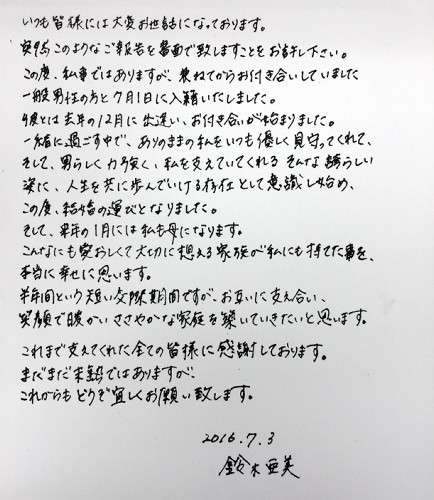 いつも皆様には大変お世話になっております。
突然このようなご報告を書面で致しますことをお許し下さい。
この度、私事ではありますが、兼ねてからお付き合いしていました
一般男性の方と7月1日に入籍いたしました。
彼とは去年の12月に出逢い、お付き合いが始まりました。
一緒に過ごす中で、ありのままの私をいつも優しく見守ってくれて、
そして、男らしく力強く、私を支えていてくれる そんな誇らしい
姿に、人生を共に歩んでいける存在として意識し始め、
この度、結婚の運びとなりました。
そして、来年の1月には私も母になります。
こんなにも愛おしくて大切に想える家族が私にも持てた事を、
本当に幸せに思います。
半年間という短い交際期間ですが、お互いに支え合い、
笑顔で暖かいささやかな家庭を築いていきたいと思います。
これまで支えてくれた全ての皆様に感謝しております。
まだまだ未熟ではありますが、
これからもどうぞ宜しくお願い致します。
2016.7.3
鈴木亜美